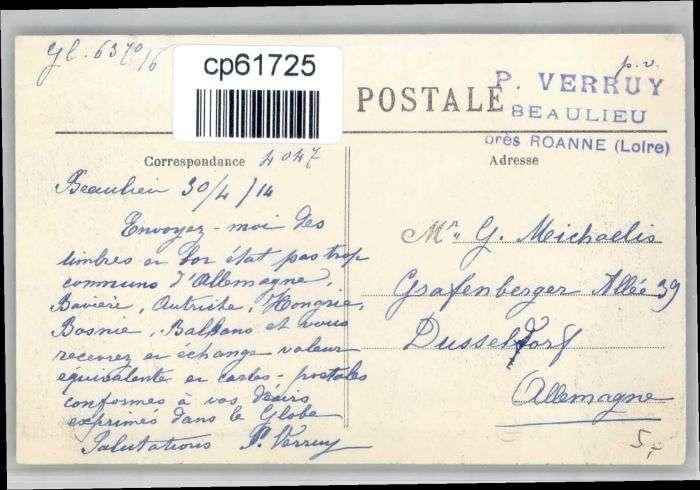 Gl. 6370/6
cp61725
POSTALE
p.v.
P. VERRUY
BEAULIEU
près ROANNE (Loire)
Correspondance
4047
Adresse
Beaulieu 30/4/14
Envoyez-moi des
timbres en bon état pas trop
communs d'Allemagne,
Bavière, Autriche, Hongrie,
Bosnie, Balkans et vous
recevrez en échange valeur
équivalente en cartes-postales
conformes à vos désirs
exprimés dans le Globe
Salutations P. Verruy
Mr. G. Michaelis
Grafenberger Allée 39
Dusseldorf
Allemagne
5,-